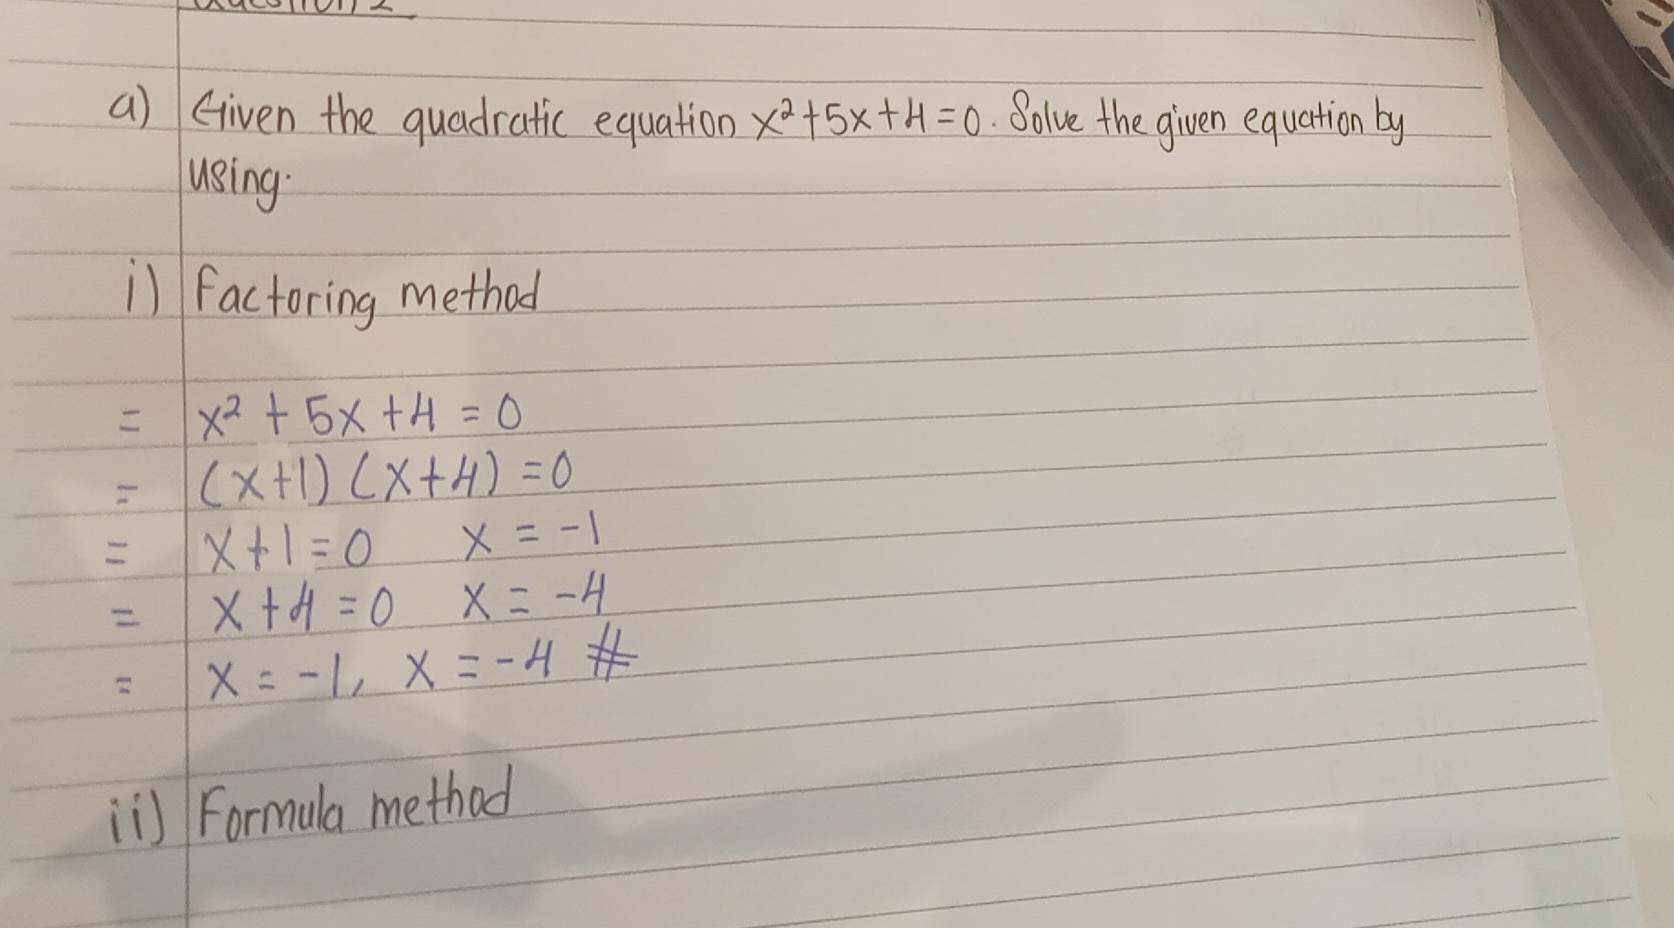 Question 2
a) Given the quadratic equation x² + 5x + 4 = 0. Solve the given equation by
using.
i) Factoring method
= x² + 5x + 4 = 0
= (x+1) (x+4) = 0
= x+1 = 0 x = -1
= x + 4 = 0 x = -4
= x = -1, x = -4 #
ii) Formula method